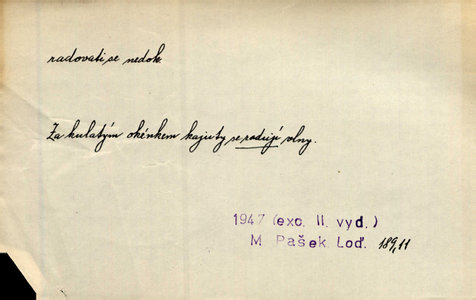 radovati se nedok.
Za kulatým okénkem kajuty se radují vlny.
1947 (exc. II. vyd.)
M. Pašek. Loď. 189,11